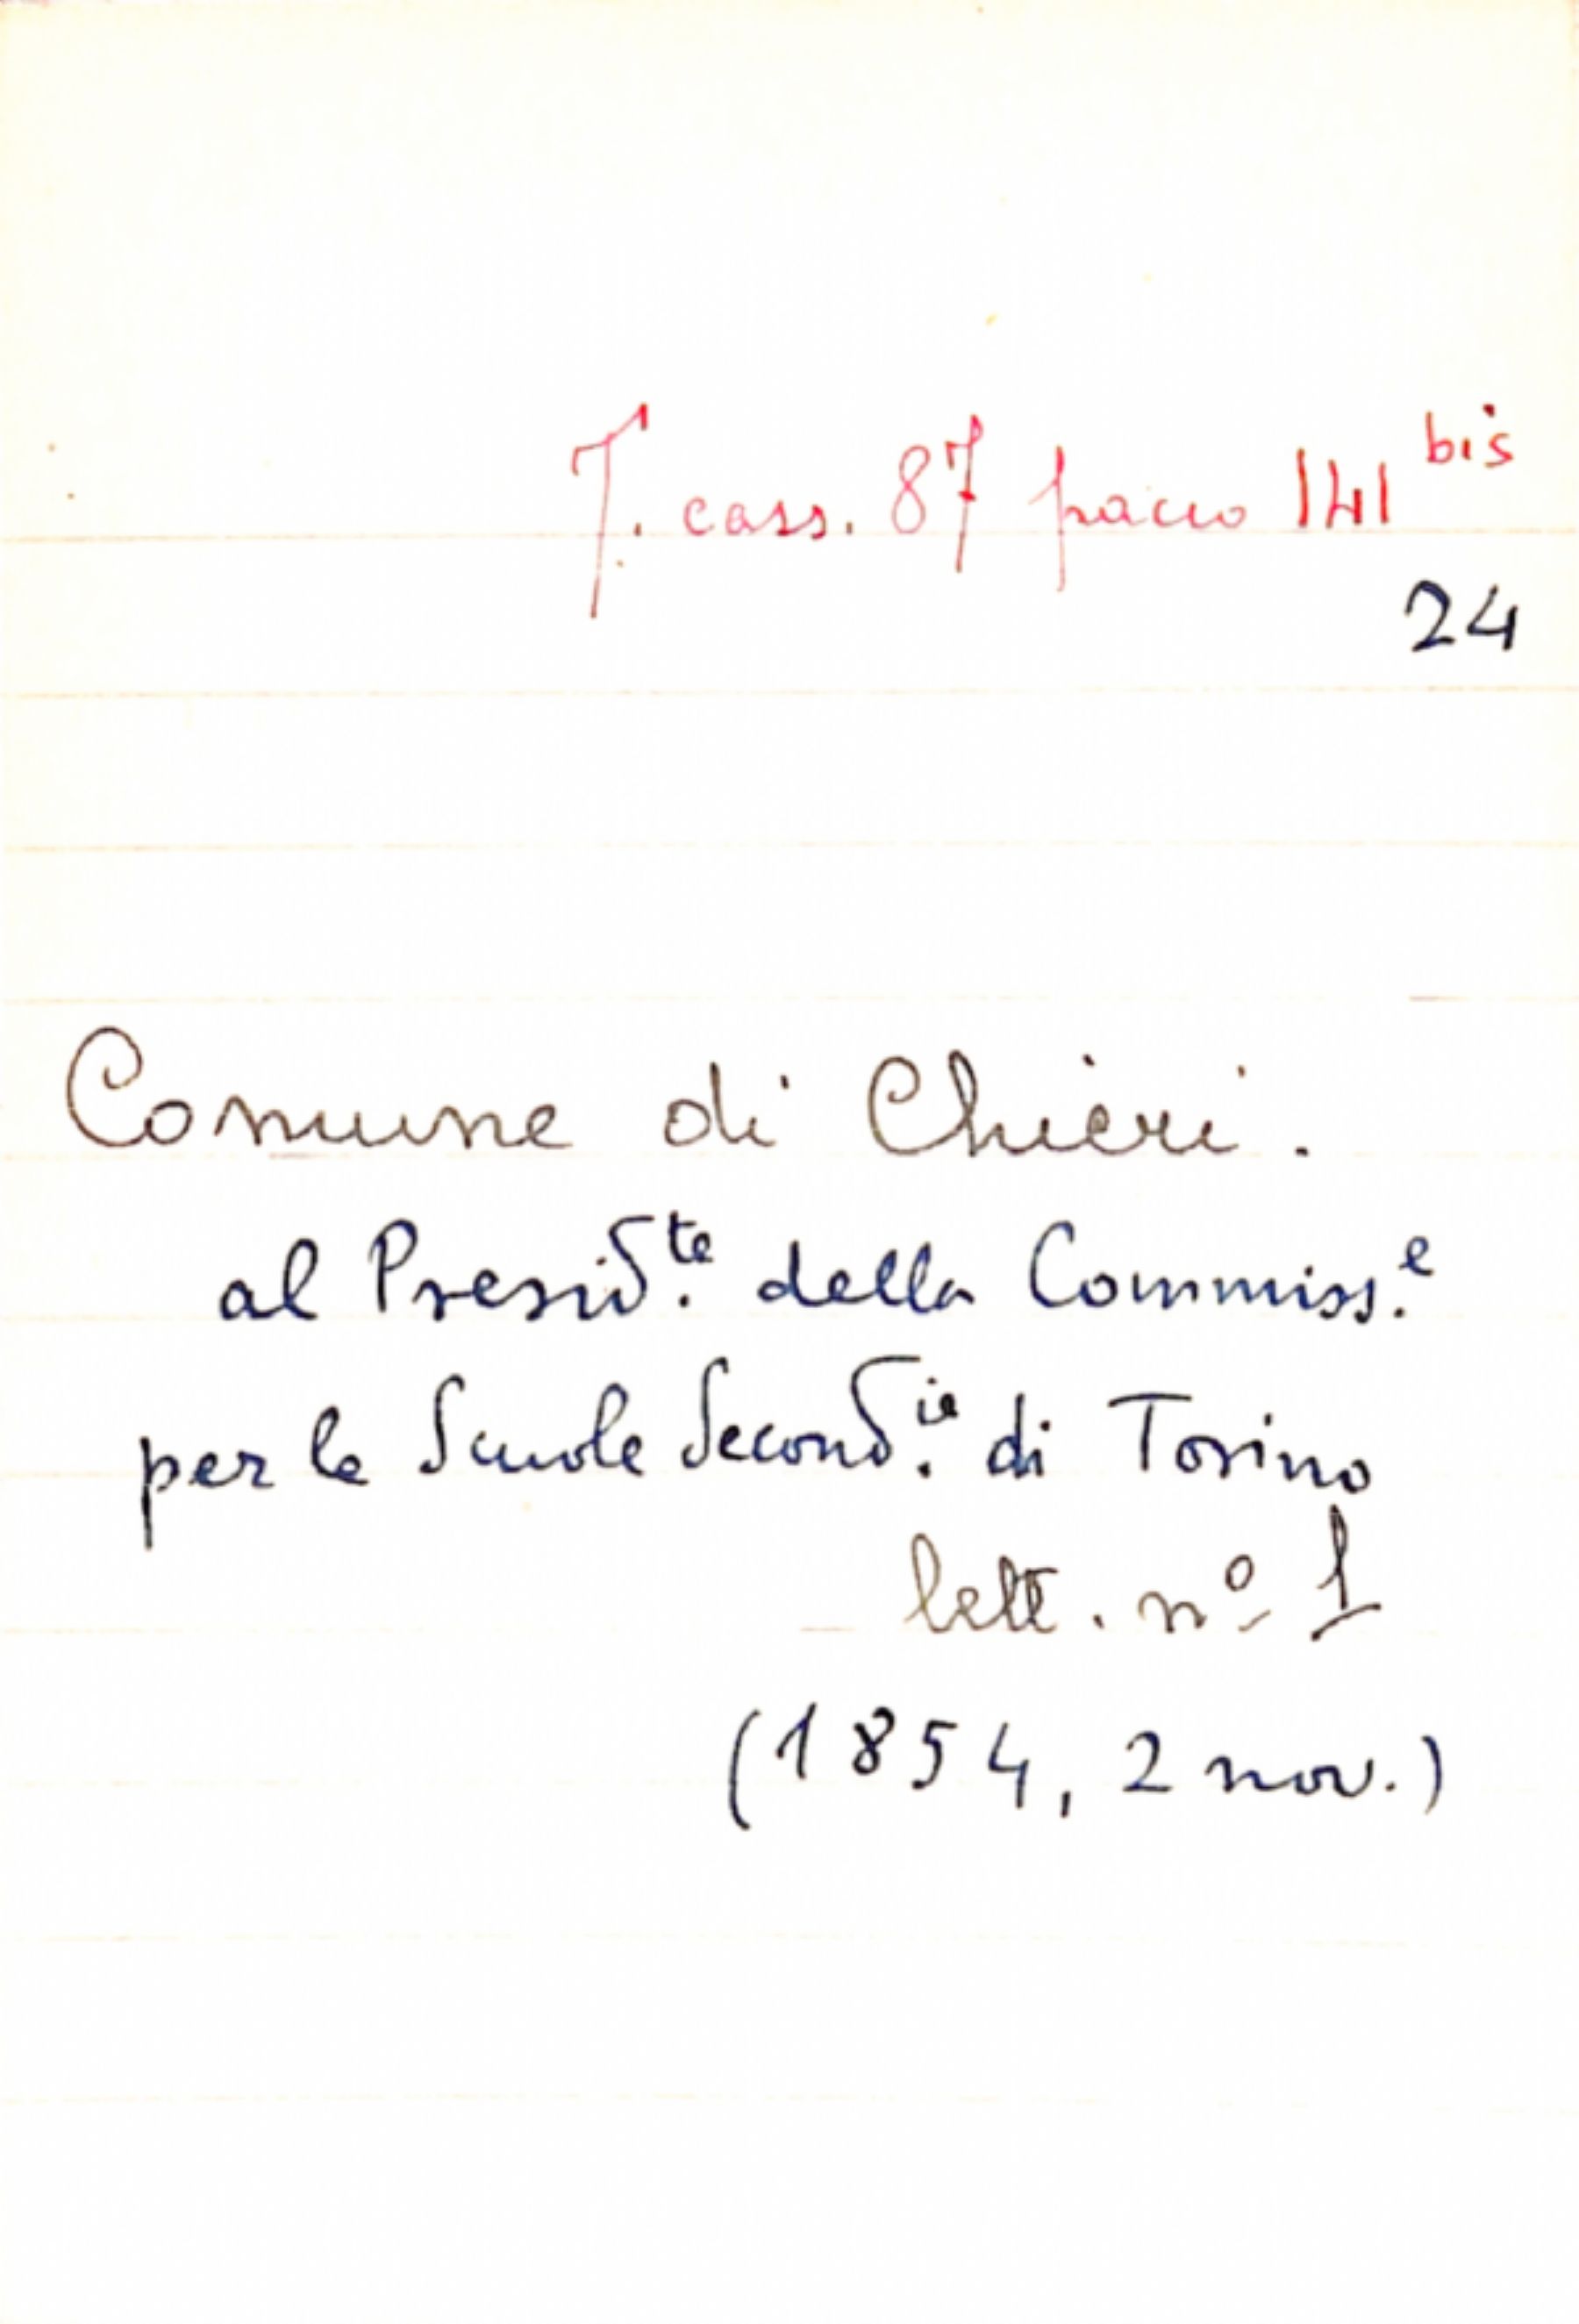 T. cass. 87 pacco 141 bis
24
Comune di Chieri.
al Presid.te della Commiss.e
per le Scuole Second.ie di Torino
lett. nº 1
(1854, 2 nov.)